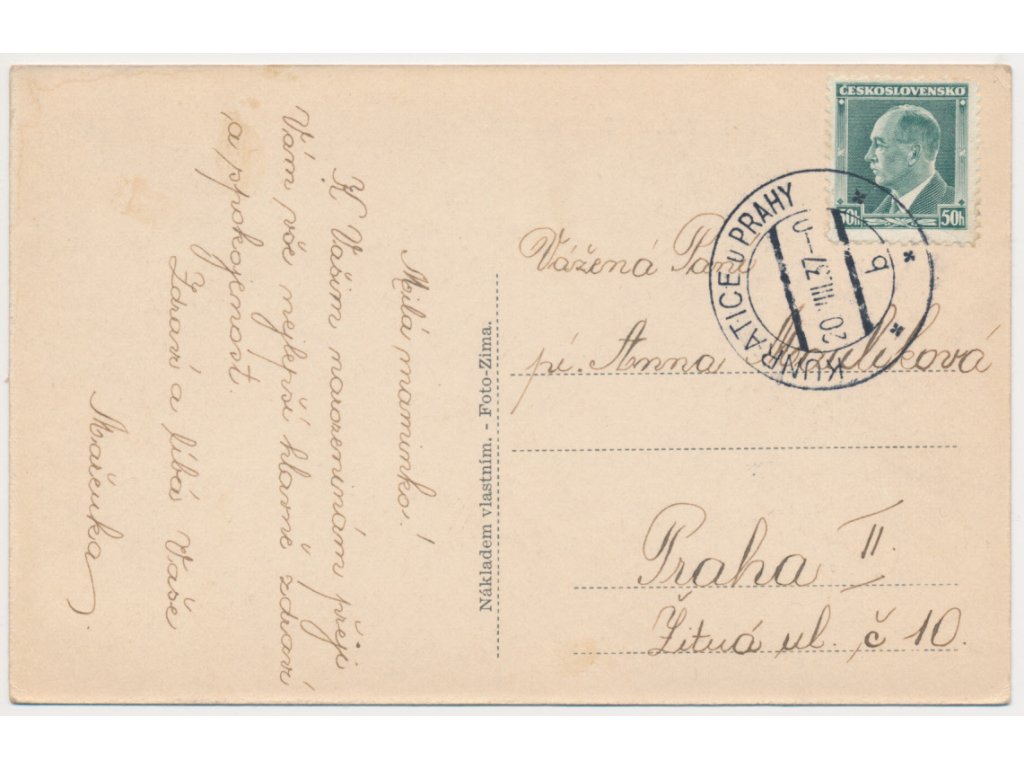 Milá maminko!
K Vašim narozeninám přeji
Vám vše nejlepší hlavně zdraví
a spokojenost.
Zdraví a líbá Vaše
Mařenka.
Nákladem vlastním. - Foto-Zima.
ČESKOSLOVENSKO
50h 50h
KUNRATICE u PRAHY
20 VIII 37
b
Vážená Paní
pí. Anna
Praha II.
Žitná ul. č 10.